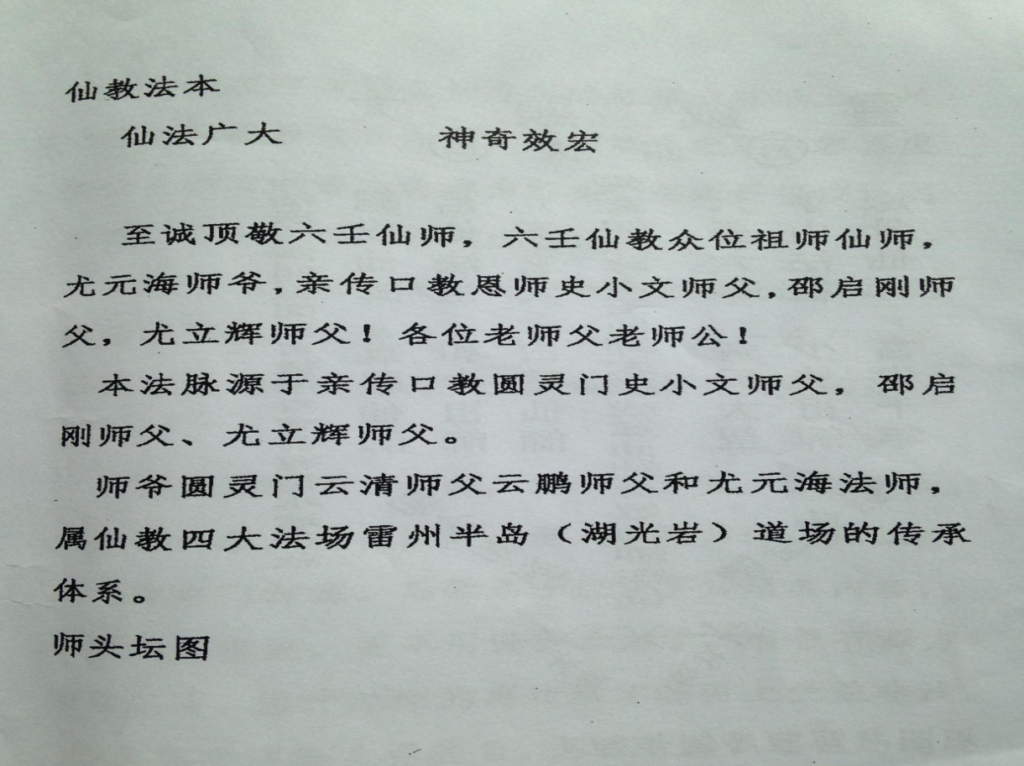 仙教法本
仙法广大 神奇效宏
至诚顶敬六壬仙师，六壬仙教众位祖师仙师，
尤元海师爷，亲传口教恩师史小文师父，邵启刚师
父，尤立辉师父！各位老师父老师公！
本法脉源于亲传口教圆灵门史小文师父，邵启
刚师父、尤立辉师父。
师爷圆灵门云清师父云鹏师父和尤元海法师，
属仙教四大法场雷州半岛（湖光岩）道场的传承
体系。
师头坛图